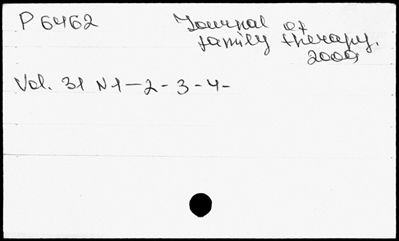 P 6462
Journal of
family therapy.
2009
Vol. 31 N1-2-3-4-